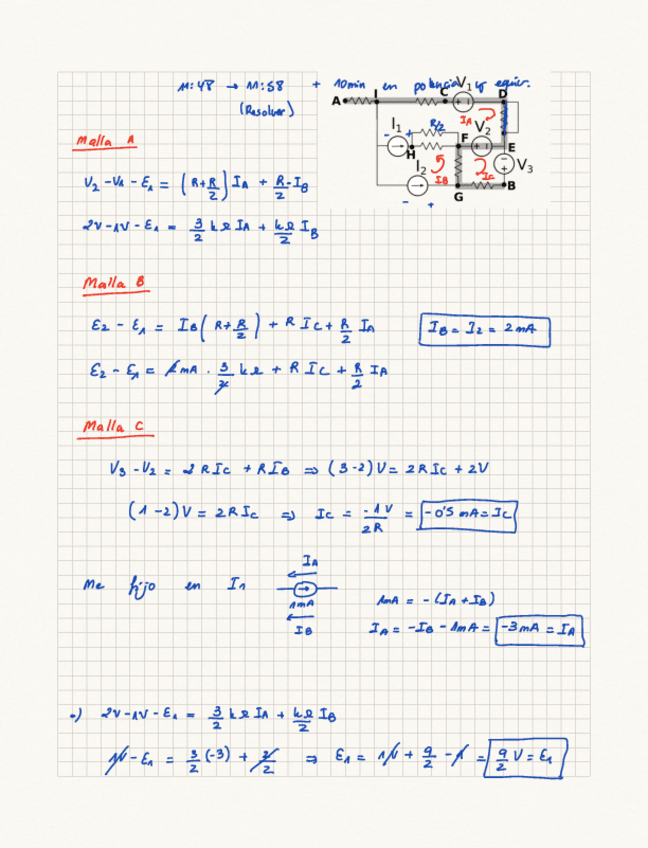 11:48 → 11:58 + 10min en potencia y equiv.
(Resolver)
A I C V₁ D
I₁ R/2 I_A V₂
H F E
I₂ I_B I_C V₃
G B
Malla A
V₂ - V₁ - E₁ = (R + R/2) I_A + R/2 · I_B
2V - 1V - E₁ = 3/2 kΩ I_A + kΩ/2 I_B
Malla B
E₂ - E₁ = I_B (R + R/2) + R I_C + R/2 I_A
I_B = I₂ = 2mA
E₂ - E₁ = 2mA · 3/2 kΩ + R I_C + R/2 I_A
Malla C
V₃ - V₂ = 2 R I_C + R I_B ⇒ (3-2)V = 2 R I_C + 2V
(1-2)V = 2 R I_C ⇒ I_C = -1V/2R = -0'5 mA = I_C
Me fijo en I₁
I_A
1mA
I_B
1mA = -(I_A + I_B)
I_A = -I_B - 1mA = -3mA = I_A
•) 2V - 1V - E₁ = 3/2 kΩ I_A + kΩ/2 I_B
1V - E₁ = 3/2 (-3) + 2/2 ⇒ E₁ = 1V + 9/2 - 1 = 9/2 V = E₁